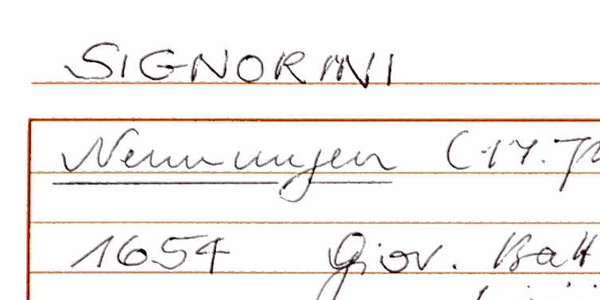 SIGNORINI
Nennungen (17. Jh
1654 Giov. Batt